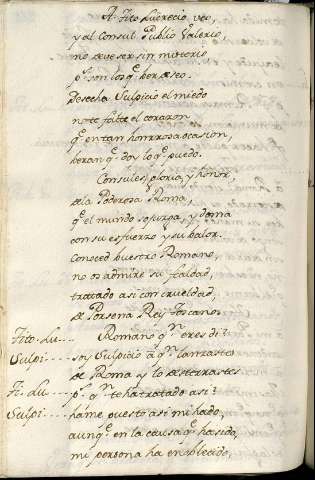 A Tito Lucrecio, veo,
y al Consul Publio Valerio,
no deve ser sin misterio
pˢ. son los q̃ ber deseo.
Desecha Sulpicio el miedo
no te falte el corazon
q̃ en tan honrrosa ocasion,
beran q̃ doy lo q̃ puedo.
Consules, gloria, y honor,
de la Poderosa Roma,
q̃ el mundo sojuzga, y doma
con su esfuerzo y su balor.
Conoced buestro Romano,
no os admire su fialdad,
tratado asi con crueldad,
de Porsena Rey Toscano.
Tito. Lu.... Romano qⁿ. eres di?
Sulpi.... soy Sulpicio á qⁿ. lanzastes
de Roma y lo desterrastes
Ti. Lu.... pʳ. qⁿ. te ha tratado asi?
Sulpi.... hame puesto asi mi hado,
aunq̃ en la causa q̃ ha sido,
mi persona ha enoblecido,